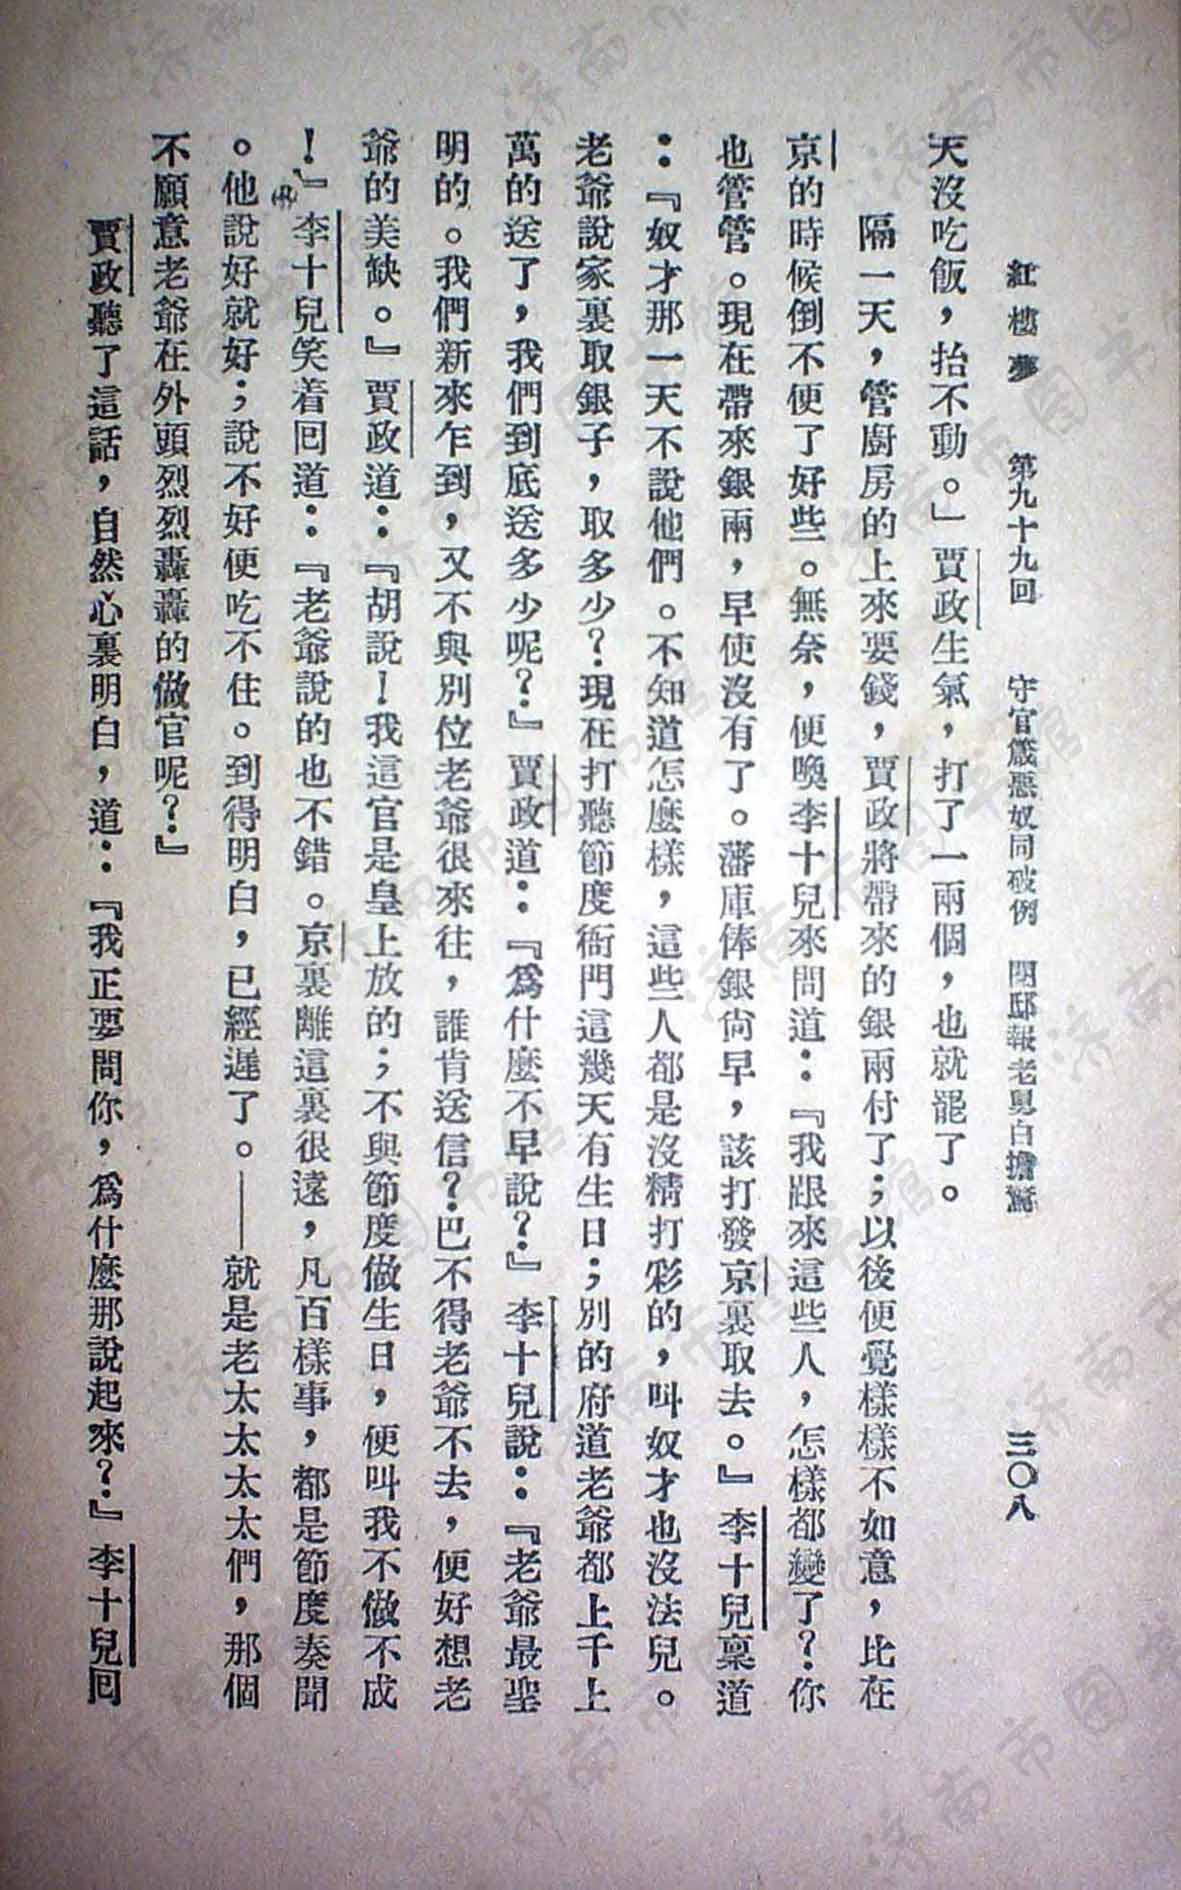 紅樓夢　第九十九回　守官箴惡奴同破例　閱邸報老舅自擔驚　三〇八
天沒吃飯，抬不動。」賈政生氣，打了一兩個，也就罷了。
隔一天，管廚房的上來要錢，賈政將帶來的銀兩付了；以後便覺樣樣不如意，比在
京的時候倒不便了好些。無奈，便喚李十兒來問道：『我跟來這些人，怎樣都變了？你
也管管。現在帶來銀兩，早使沒有了。藩庫俸銀尙早，該打發京裏取去。』李十兒稟道
：『奴才那一天不說他們。不知道怎麼樣，這些人都是沒精打彩的，叫奴才也沒法兒。
老爺說家裏取銀子，取多少？現在打聽節度衙門這幾天有生日；別的府道老爺都上千上
萬的送了，我們到底送多少呢？』賈政道：『爲什麼不早說？』李十兒說：『老爺最聖
明的。我們新來乍到，又不與別位老爺很來往，誰肯送信？巴不得老爺不去，便好想老
爺的美缺。』賈政道：『胡說！我這官是皇上放的；不與節度做生日，便叫我不做不成
！』李十兒笑着回道：『老爺說的也不錯。京裏離這裏很遠，凡百樣事，都是節度奏聞
。他說好就好；說不好便吃不住。到得明白，已經遲了。——就是老太太太太們，那個
不願意老爺在外頭烈烈轟轟的做官呢？』
賈政聽了這話，自然心裏明白，道：『我正要問你，爲什麼那說起來？』李十兒回
济南市图书馆